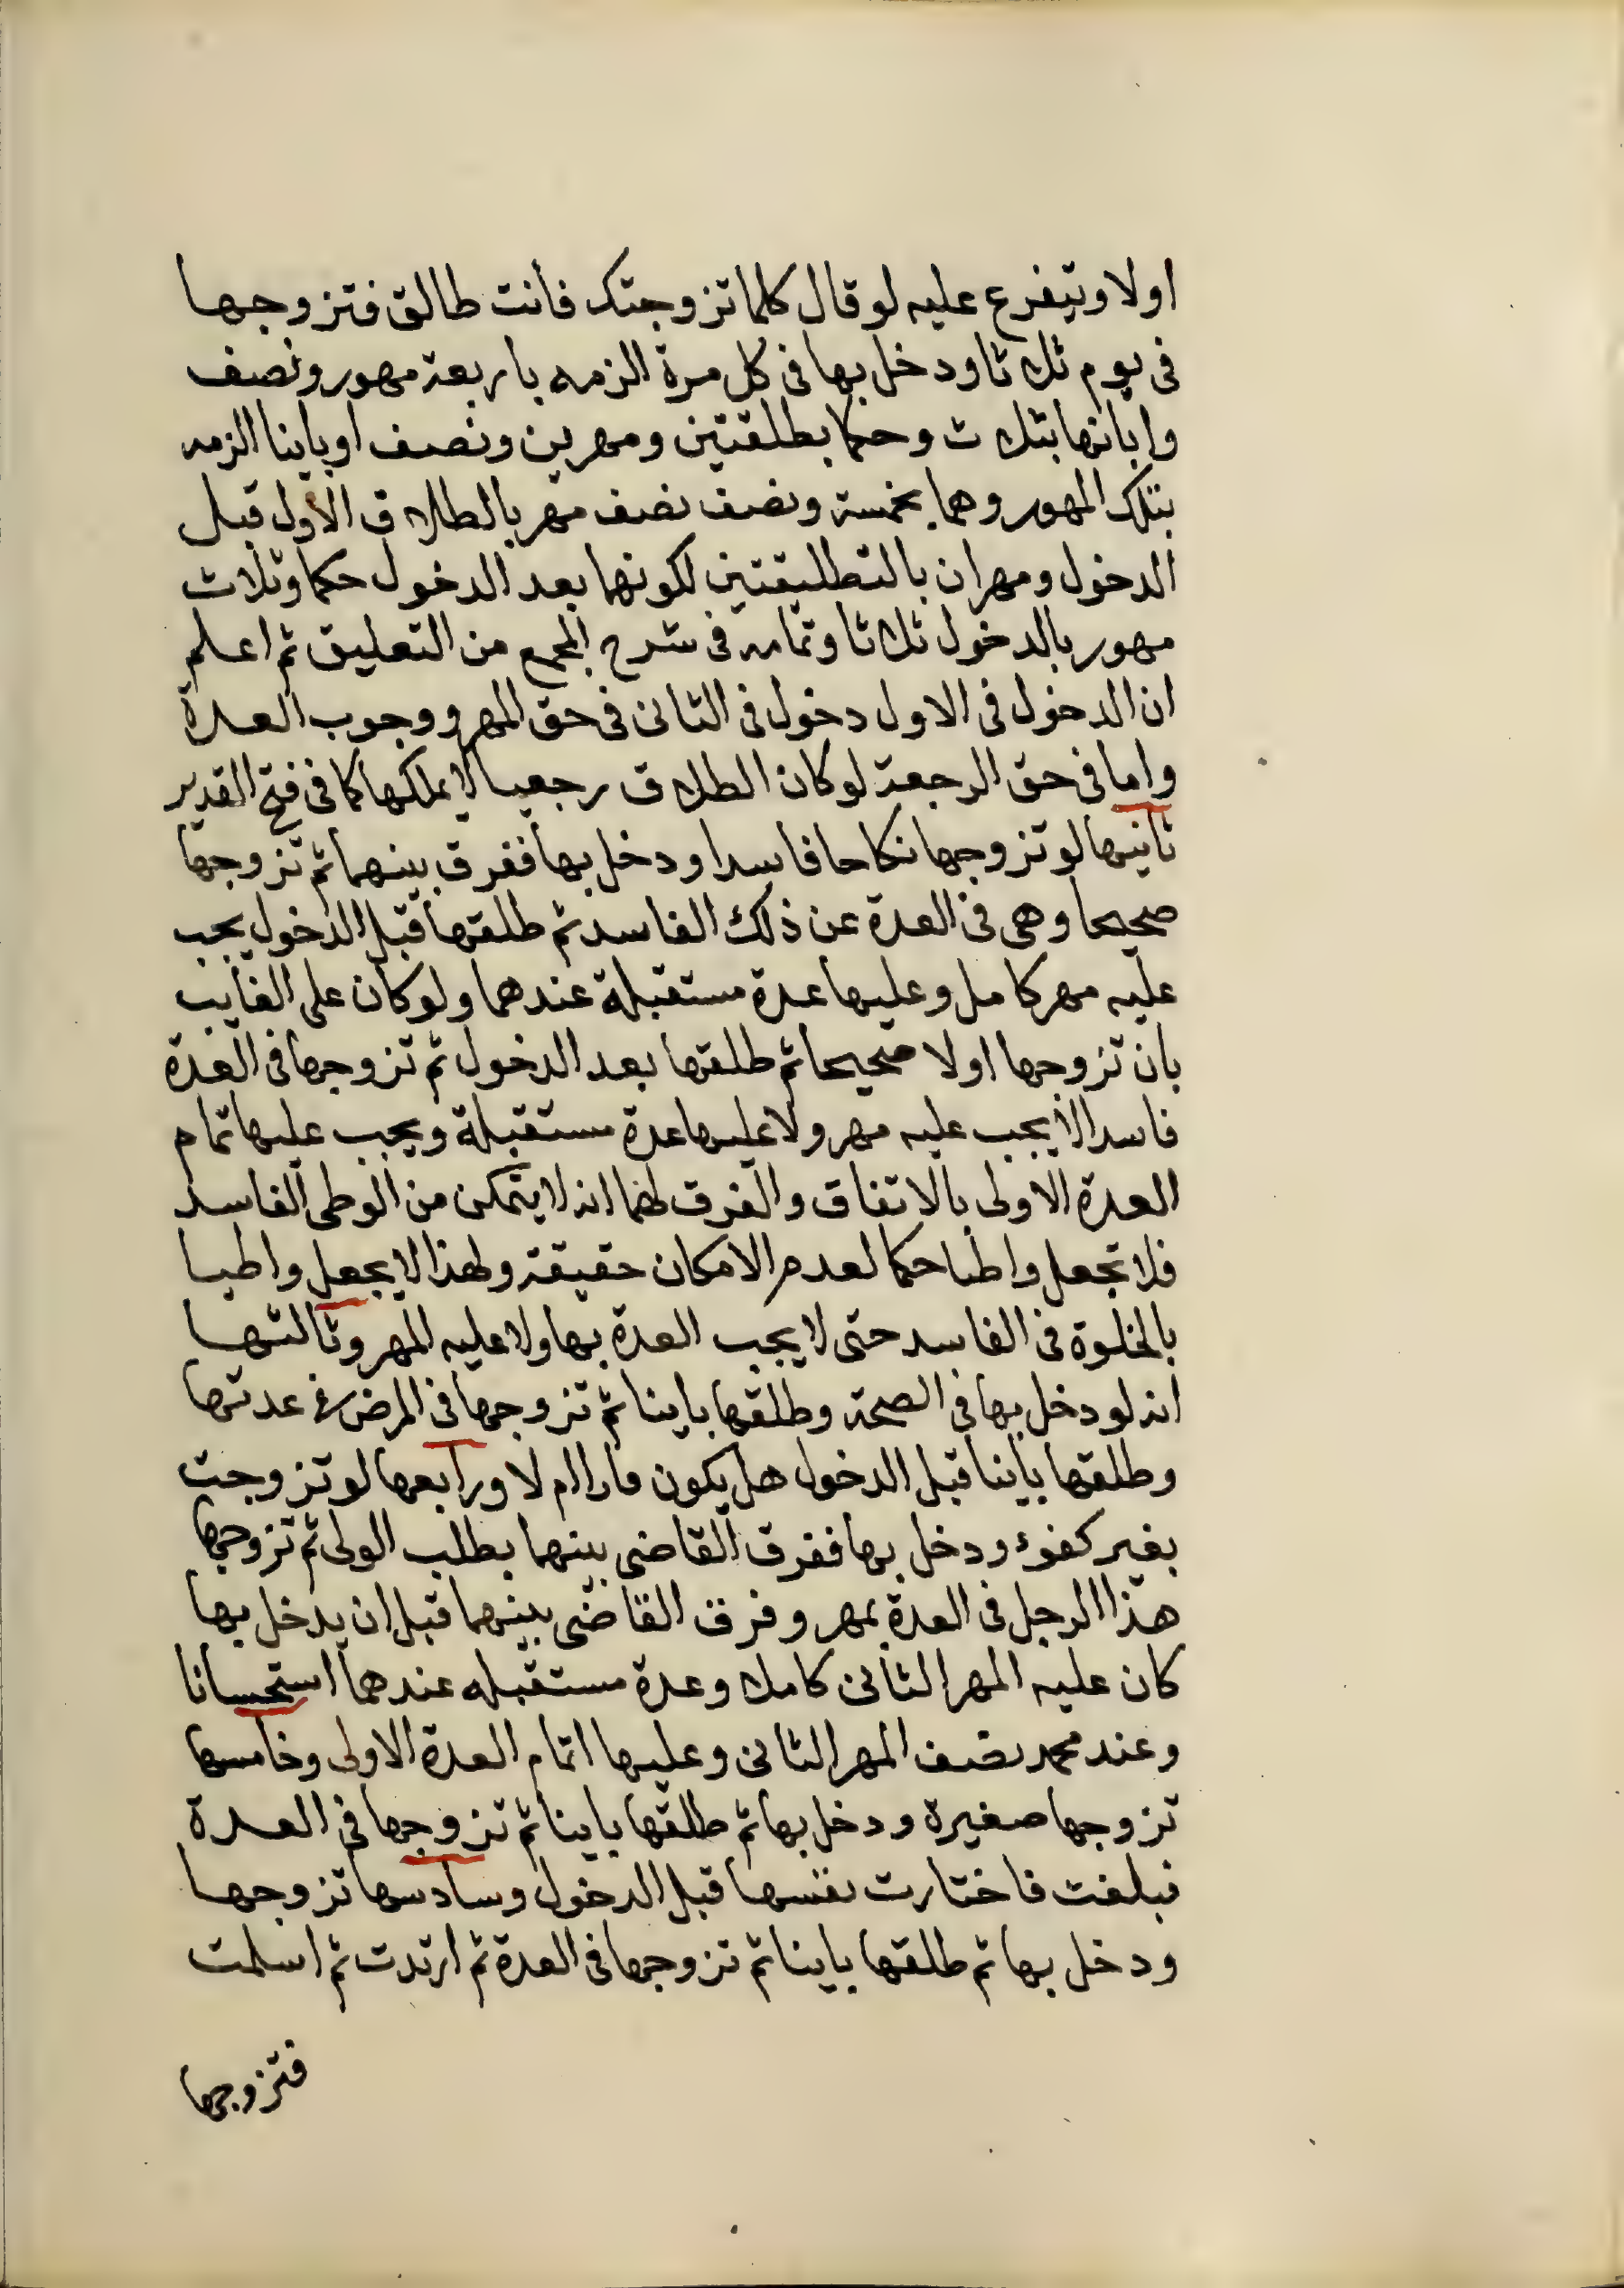 اولا ويتفرع عليه لو قال كلما تزوجتك فأنت طالق فتزوجها
فى يوم ثلاثا ودخل بها فى كل مرة الزمه باربعة مهور ونصف
وابانها بثلاث وحكما بطلقتين ومهرين ونصف او باينا الزمه
بتلك المهور وهما بخمسة ونصف نصف مهر بالطلاق الاول قبل
الدخول ومهران بالتطليقتين لكونهما بعد الدخول حكما وثلاث
مهور بالدخول ثلاثا وتمامه فى شرح المجمع من التعليق ثم اعلم
ان الدخول فى الاول دخول فى الثانى فى حق المهر ووجوب العدة
واما فى حق الرجعة لو كان الطلاق رجعيا لا يملكها كما فى فتح القدير
ثانيها لو تزوجها نكاحا فاسدا ودخل بها ففرق بينهما ثم تزوجها
صحيحا وهى فى العدة عن ذلك الفاسد ثم طلقها قبل الدخول يجب
عليه مهر كامل وعليها عدة مستقبلة عندهما ولو كان على الغايب
بان تزوجها اولا صحيحا ثم طلقها بعد الدخول ثم تزوجها فى العدة
فاسدا لا يجب عليه مهر ولا عليها عدة مستقبلة ويجب عليها تمام
العدة الاولى بالاتفاق والفرق لهما انه لا يتمكن من الوطى الفاسد
فلا تجعل واطئا حكما لعدم الامكان حقيقة ولهذا لا يجعل واطيا
بالخلوة فى الفاسد حتى لا يجب العدة بها ولا عليه المهر وثالثها
انه لو دخل بها فى الصحة وطلقها باينا ثم تزوجها فى المرض فى عدتها
وطلقها باينا قبل الدخول هل يكون فارا ام لا ورابعها لو تزوجت
بغير كفوء ودخل بها ففرق القاضى بينهما بطلب الولى ثم تزوجها
هذا الرجل فى العدة بمهر وفرق القاضى بينهما قبل ان يدخل بها
كان عليه المهر الثانى كاملا وعدة مستقبله عندهما استحسانا
وعند محمد نصف المهر الثانى وعليها اتمام العدة الاولى وخامسها
تزوجها صغيرة ودخل بها ثم طلقها باينا ثم تزوجها فى العدة
فبلغت فاختارت نفسها قبل الدخول وسادسها تزوجها
ودخل بها ثم طلقها باينا ثم تزوجها فى العدة ثم ارتدت ثم اسلمت
فتزوجها